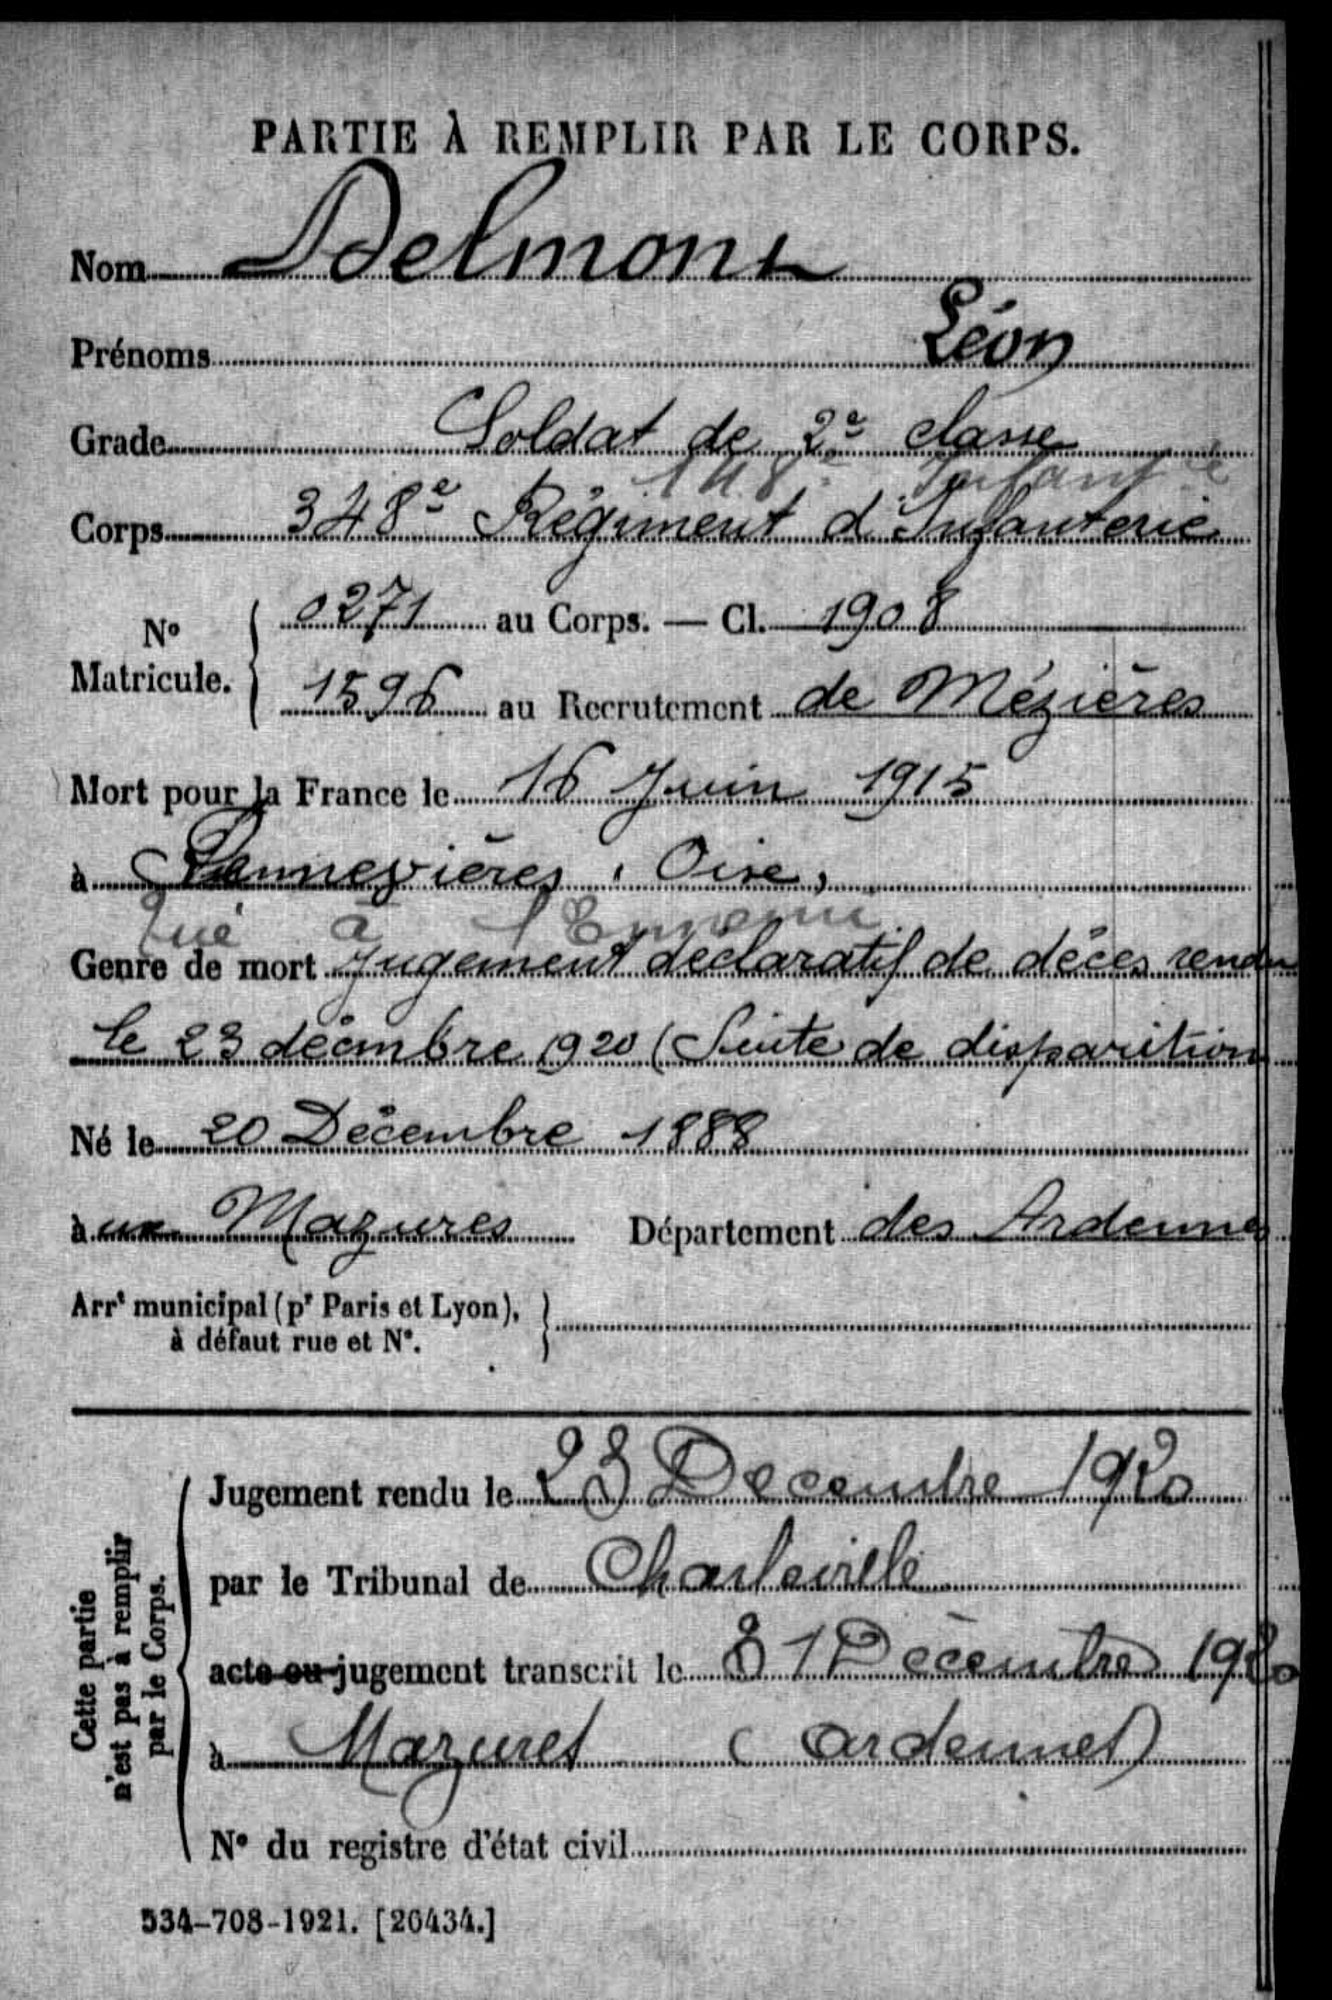 PARTIE À REMPLIR PAR LE CORPS.
Nom Delmont
Prénoms Léon
Grade Soldat de 2e classe
148e Infant ie
Corps 348e Régiment d'Infanterie
No Matricule. 0271 au Corps. — Cl. 1908
1596 au Recrutement de Mézières
Mort pour la France le 16 Juin 1915
à Pennevières, Oise,
Tué à l'Ennemi
Genre de mort Jugement déclaratif de décès rendu
le 23 décembre 1920 (Suite de disparition
Né le 20 Décembre 1888
à ux Mazures Département des Ardennes
Arrt municipal (pr Paris et Lyon),
à défaut rue et No.
Cette partie
n'est pas à remplir
par le Corps.
Jugement rendu le 23 Decembre 1920
par le Tribunal de Charleville
acte ou jugement transcrit le 31 Décembre 1920
à Mazures (Ardennes)
No du registre d'état civil
534-708-1921. [26434.]